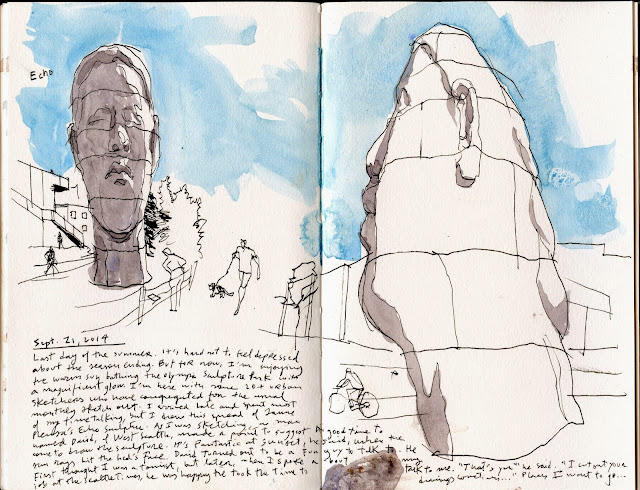 Echo
Sept. 21, 2014
Last day of the summer. It's hard not to feel depressed
about the season ending. But for now, I'm enjoying
the warm sun bathing the Olympic Sculpture Park with
a magnificent glow. I'm here with some 20+ urban
sketchers who have congregated for the usual
monthly sketch out. I arrived late and spent most
of my time talking, but I drew this spread of Jaume
Plensa's Echo sculpture. As I was sketching, a man
named David, of West Seattle, made a point to suggest a good time to
come to draw the sculpture. It's fantastic at sunset, he said, when the
sun rays hit the head's face. David turned out to be a fun guy to talk to. He
first thought I was a tourist, but later, when I spoke about my
job at the Seattle Times, he was happy he took the time to talk to me. "That's you" he said. "I cut out your
drawings sometimes..." Places I want to go...